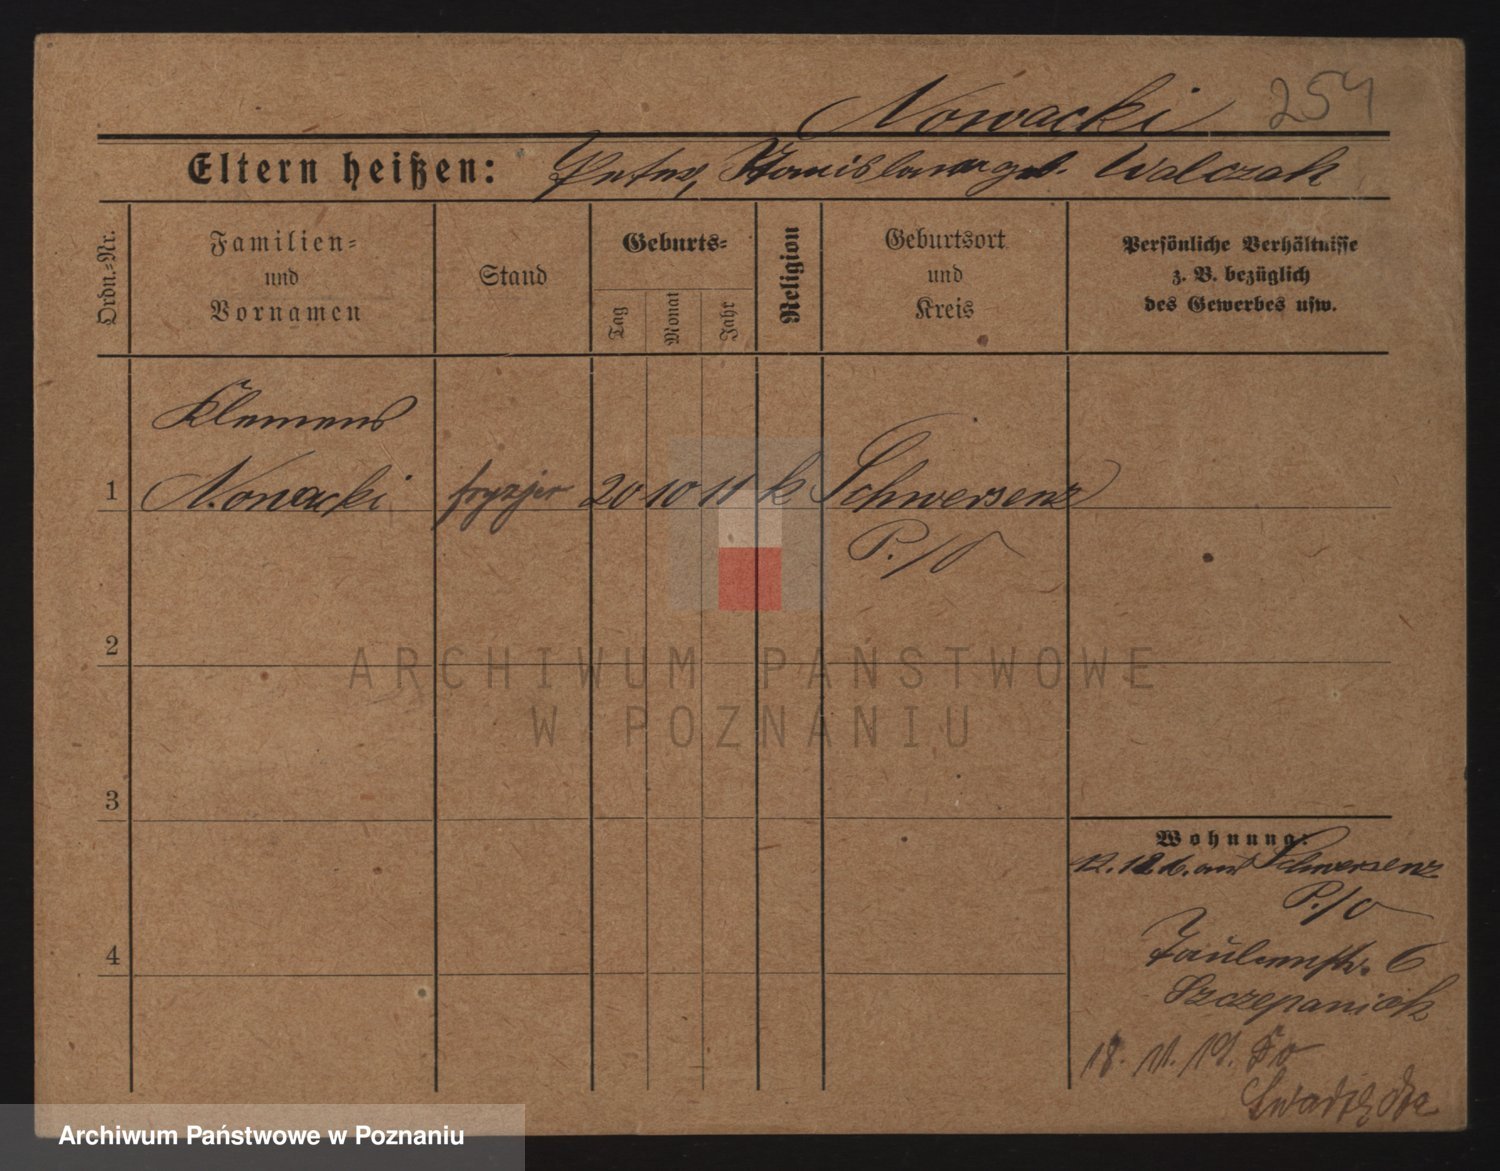 Nowacki 254
Eltern heißen: Peter, Stanislawa geb. Walczak
Ordn.-Nr.
Familien-
und
Vornamen
Stand
Geburts-
Tag
Monat
Jahr
Religion
Geburtsort
und
Kreis
Persönliche Verhältnisse
z. B. bezüglich
des Gewerbes usw.
Klemens
1 Nowacki fryzjer 20 10 11 k Schwersenz
P./O
2
ARCHIWUM PAŃSTWOWE
W POZNANIU
3
Wohnung:
Schwersenz
P./O
6
4
Szczepaniak
18.
Archiwum Państwowe w Poznaniu